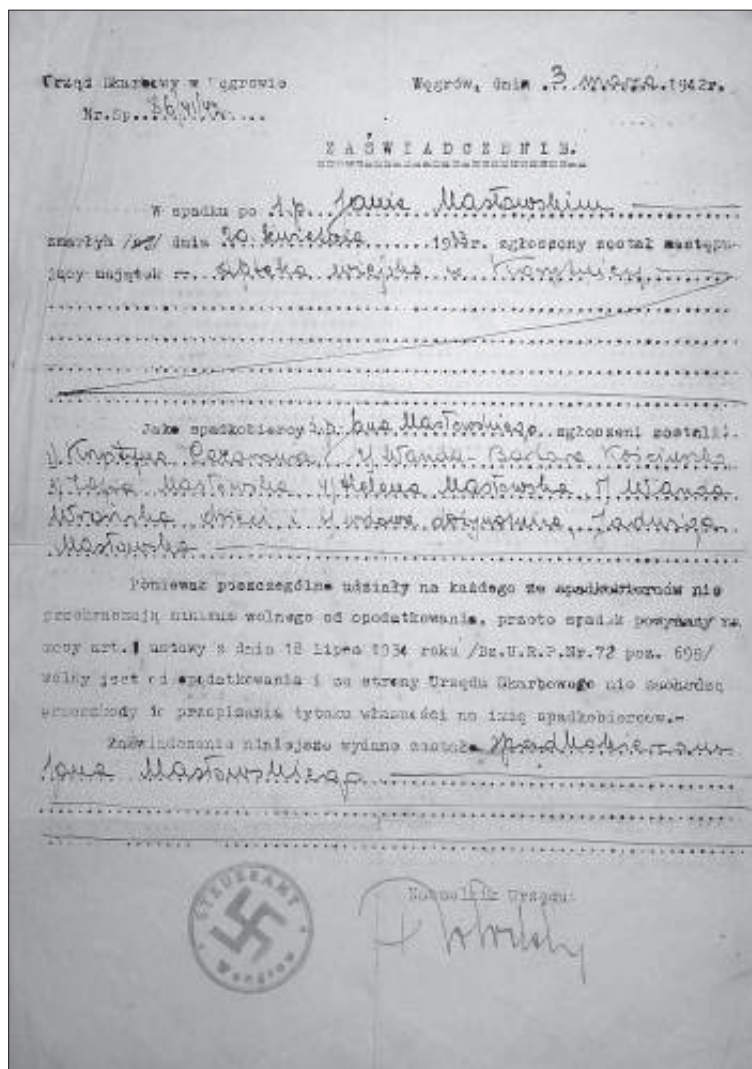 Urząd Skarbowy w Węgrowie Węgrów, dnia 3 marca 1942r.
Nr.Sp.
ZAŚWIADCZENIE.
W spadku po ś.p. Janie Masłowskim
zmarłym dnia 20 kwietnia zgłoszony został następu-
jący majątek - apteka wiejska w
Jako spadkobiercy ś.p. Jana Masłowskiego zgłoszeni zostali:
1/ Krystyna 2/ Wanda-Barbara
3/ Zofia Masłowska 4/ Helena Masłowska 5/ Wanda
Wrońska dzieci i wdowa Jadwiga
Masłowska
Ponieważ poszczególne udziały na każdego ze spadkobierców nie
przekraczają minimum wolnego od opodatkowania, przeto spadek powyższy na
mocy art.1 ustawy z dnia 18 lipca 1934 roku /Dz.U.R.P.Nr.72 poz. 698/
wolny jest od opodatkowania i ze strony Urzędu Skarbowego nie zachodzą
przeszkody do przepisania tytułu własności na imię spadkobierców.-
Zaświadczenie niniejsze wydane zostało spadkobiercom
Jana Masłowskiego
Naczelnik Urzędu:
STEUERAMT
Wengrow